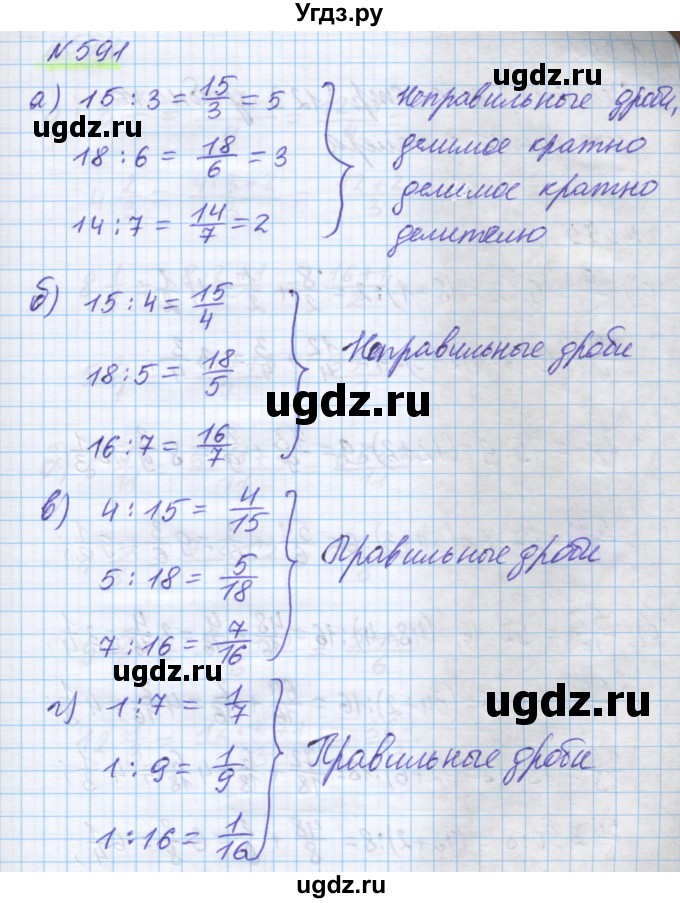 Угдз.ру
№591
а) 15 : 3 = 15/3 = 5
18 : 6 = 18/6 = 3
14 : 7 = 14/7 = 2
Неправильные дроби,
делимое кратно
делимое кратно
делителю
ugdz.ru
ugdz.ru
б) 15 : 4 = 15/4
18 : 5 = 18/5
16 : 7 = 16/7
Неправильные дроби
ugdz.ru
ugdz.ru
в) 4 : 15 = 4/15
5 : 18 = 5/18
7 : 16 = 7/16
Правильные дроби
ugdz.ru
ugdz.ru
г) 1 : 7 = 1/7
1 : 9 = 1/9
1 : 16 = 1/16
Правильные дроби
ugdz.ru